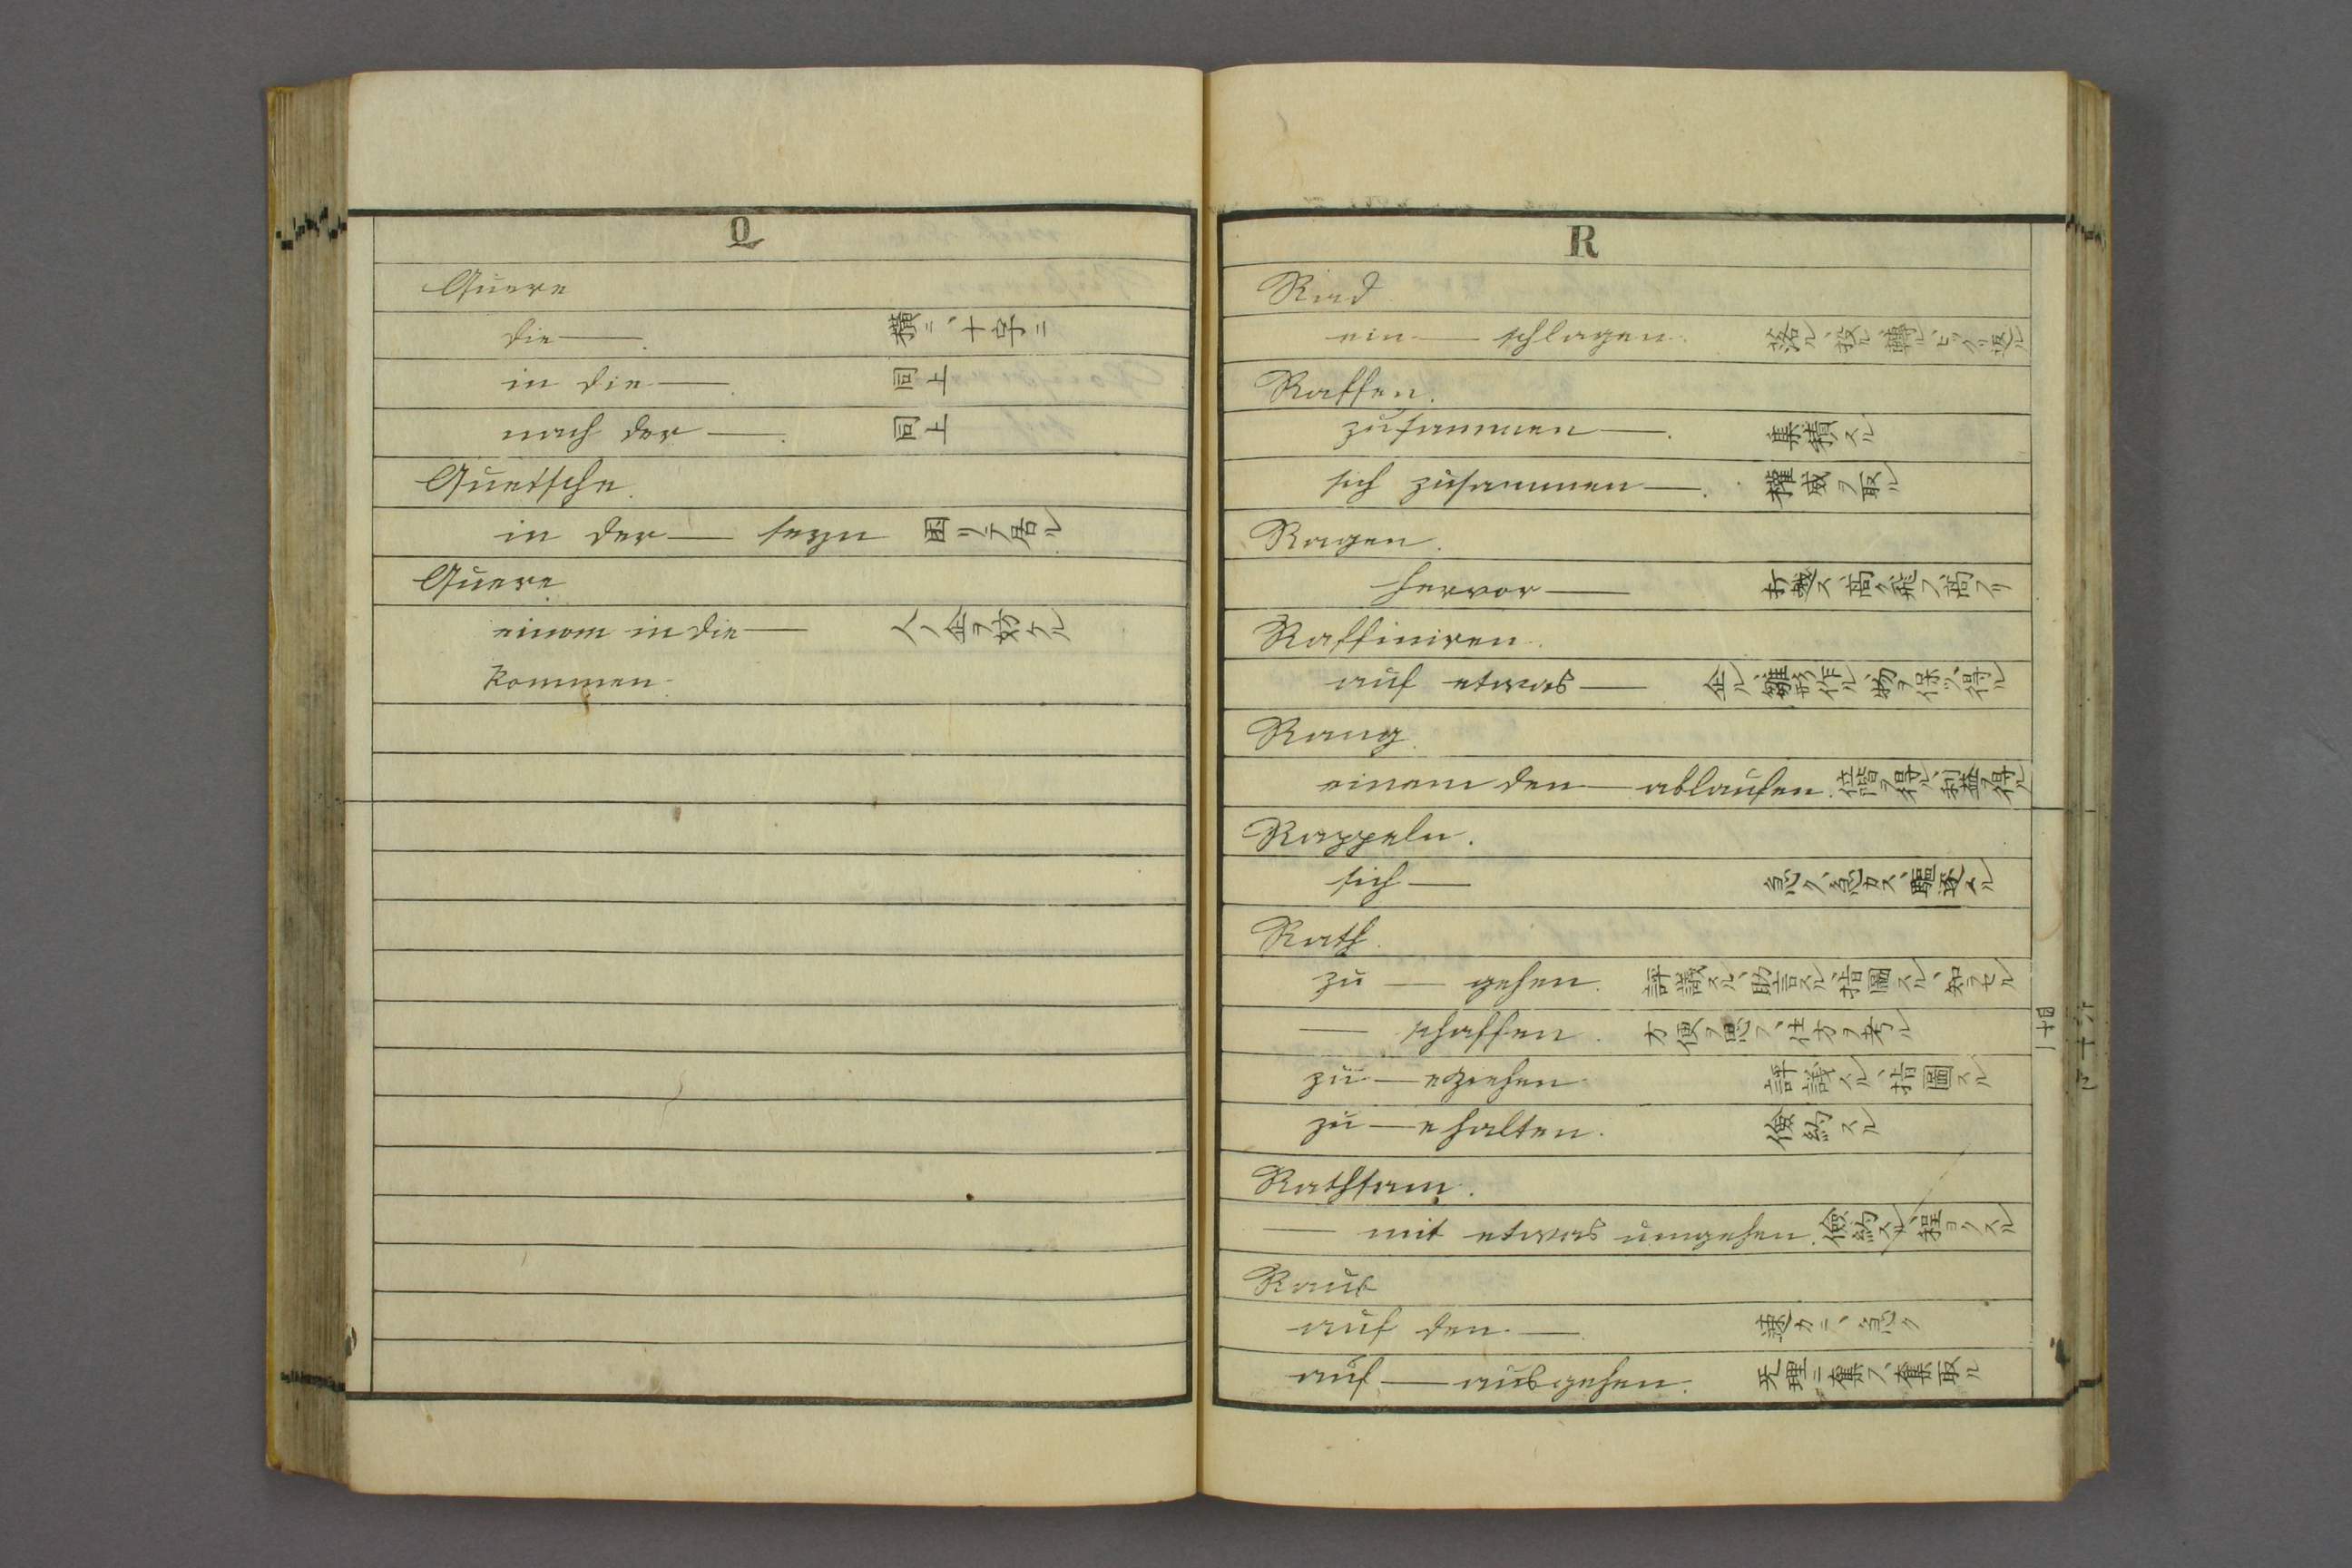 Q
Quere
die —. 横ニ、十字ニ
in die —. 同上
nach der —. 同上
Quetsche.
in der — seyn 困ツテ居ル
Quere
einem in die — 人ノ企ヲ妨ケル
kommen.
R
Rad
ein — schlagen. 落ル、投ル、轉ル、ヒツクリ返ル
Raffen.
zusammen —. 集積スル
sich zusammen —. 權威ヲ取ル
Ragen.
hervor — 高ク飛フ、高フリ
Raffiniren.
auf etwas — 企ル、雛形作ル、物ヲ保ツ、得ル
Rang.
einem den — ablaufen. 位階ヲ得ル、利益ヲ得ル
Rappeln.
sich — 急ク、急カス、驅逐スル
Rath.
zu — gehen. 評議スル、助言スル、指圖スル、知ラセル
— schaffen. 方便ヲ思フ、仕方ヲ考ル
zu — e ziehen 評議スル、指圖スル
zu — e halten. 儉約スル
Rathsam.
— mit etwas umgehen. 儉約スル、程ヨクスル
Raub
auf den —. 速カニ、急ク
auf — ausgehen. 无理ニ奪フ、奪取ル